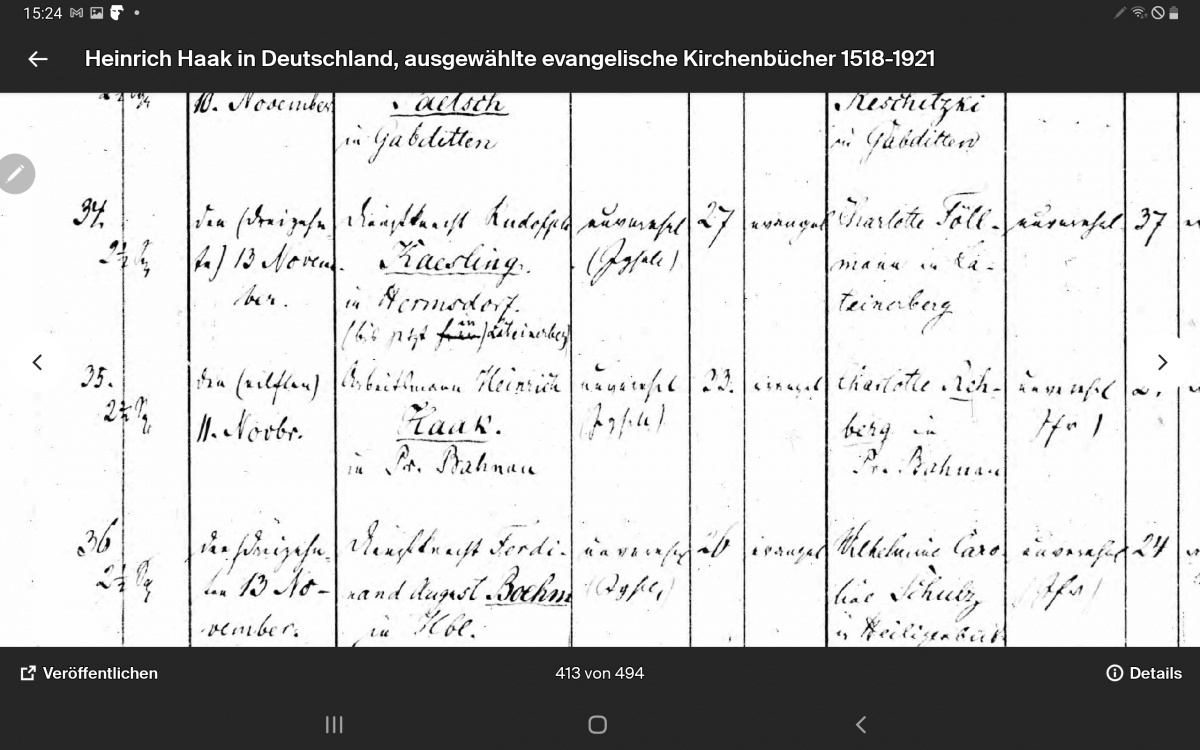 15:24
Heinrich Haak in Deutschland, ausgewählte evangelische Kirchenbücher 1518-1921
10. November
in Gabditten
Reschitzki
in Gabditten
34.
den (dreizehn-
ten) 13 Novem-
ber.
Dienstknecht Rudolph
Kaesling.
in Hermsdorf.
(bis jetzt in Lateinerberg)
unverehel
(Jgsell)
27
evangel
Charlotte Föll-
mann in La-
teinerberg
unverehel.
37
35.
den (eilften)
11. Novbr.
Arbeitsmann Heinrich
Haak.
in Pr. Bahnau
unverehel
(Jgsell)
23.
evangel
Charlotte Reh-
berg in
Pr. Bahnau
unverehel
(Jfr)
36
den (dreizehn-
ten 13 No-
vember.
Dienstknecht Ferdi-
nand August Boehm
in Hbl.
unverehel
(Jgsell)
26
evangel
Wilhelmine Caro-
line Schulz
in Heiligenbeil
unverehel
(Jfr)
24
Veröffentlichen
413 von 494
Details